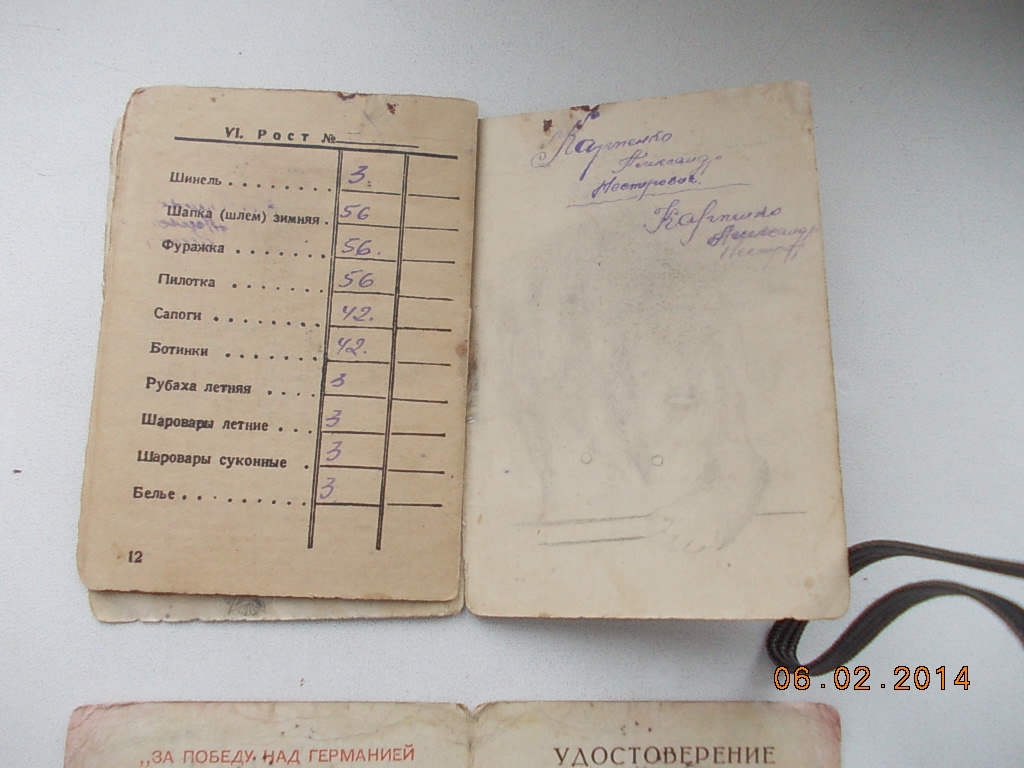 VI. Рост №
Шинель . . . . . . . . 3.
Шапка (шлем) зимняя . 56
Фуражка . . . . . . . 56.
Пилотка . . . . . . . 56
Сапоги . . . . . . . . 42.
Ботинки . . . . . . . 42.
Рубаха летняя . . . . 3
Шаровары летние . . . 3
Шаровары суконные . 3
Белье . . . . . . . . . 3
12
Карпенко
Александр
Нестерович.
Карпенко
Александр
06.02.2014
„ЗА ПОБЕДУ НАД ГЕРМАНИЕЙ
УДОСТОВЕРЕНИЕ